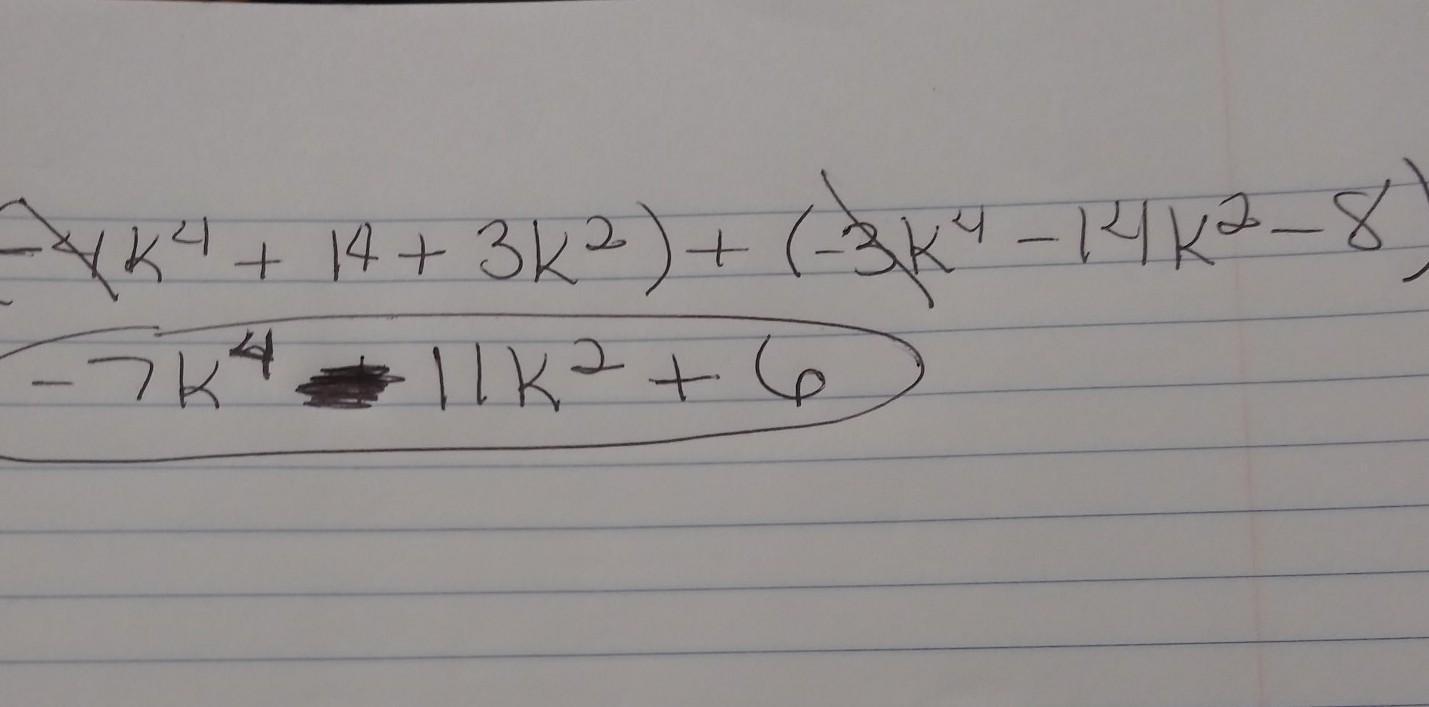 (-4k⁴ + 14 + 3k²) + (-3k⁴ - 14k² - 8)
-7k⁴ - 11k² + 6